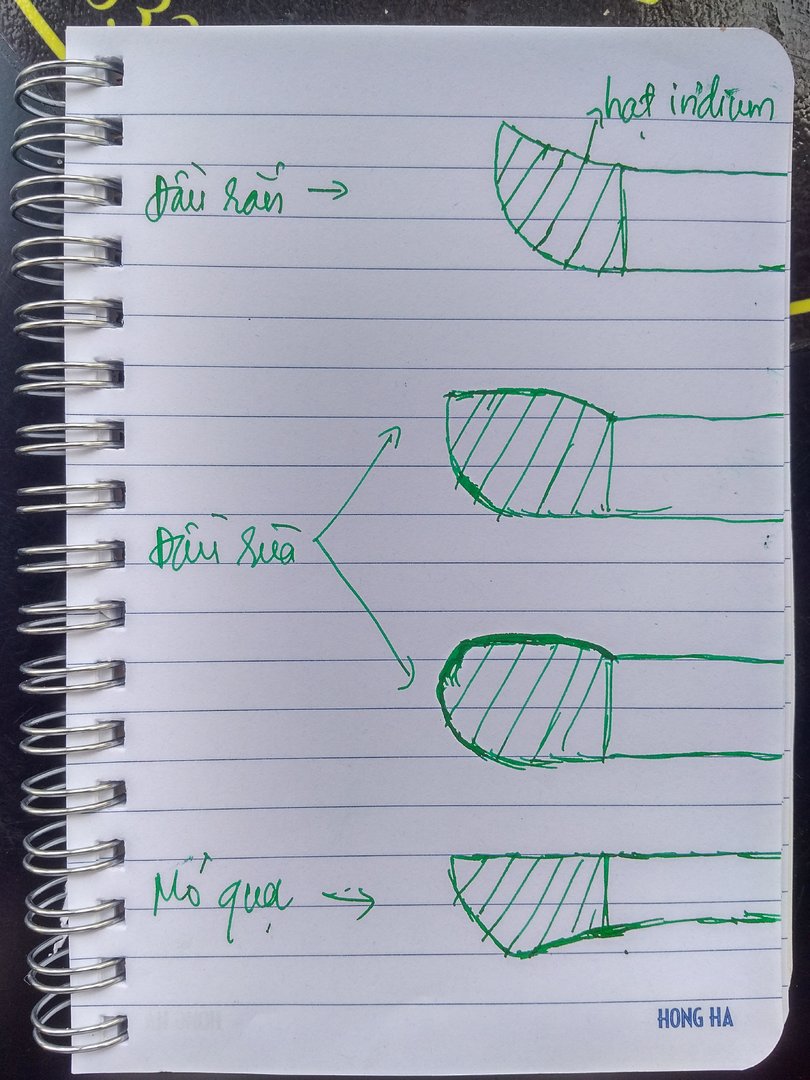 hạt iridium
Đầu rắn
Đầu rùa
Mỏ quạ
HONG HA